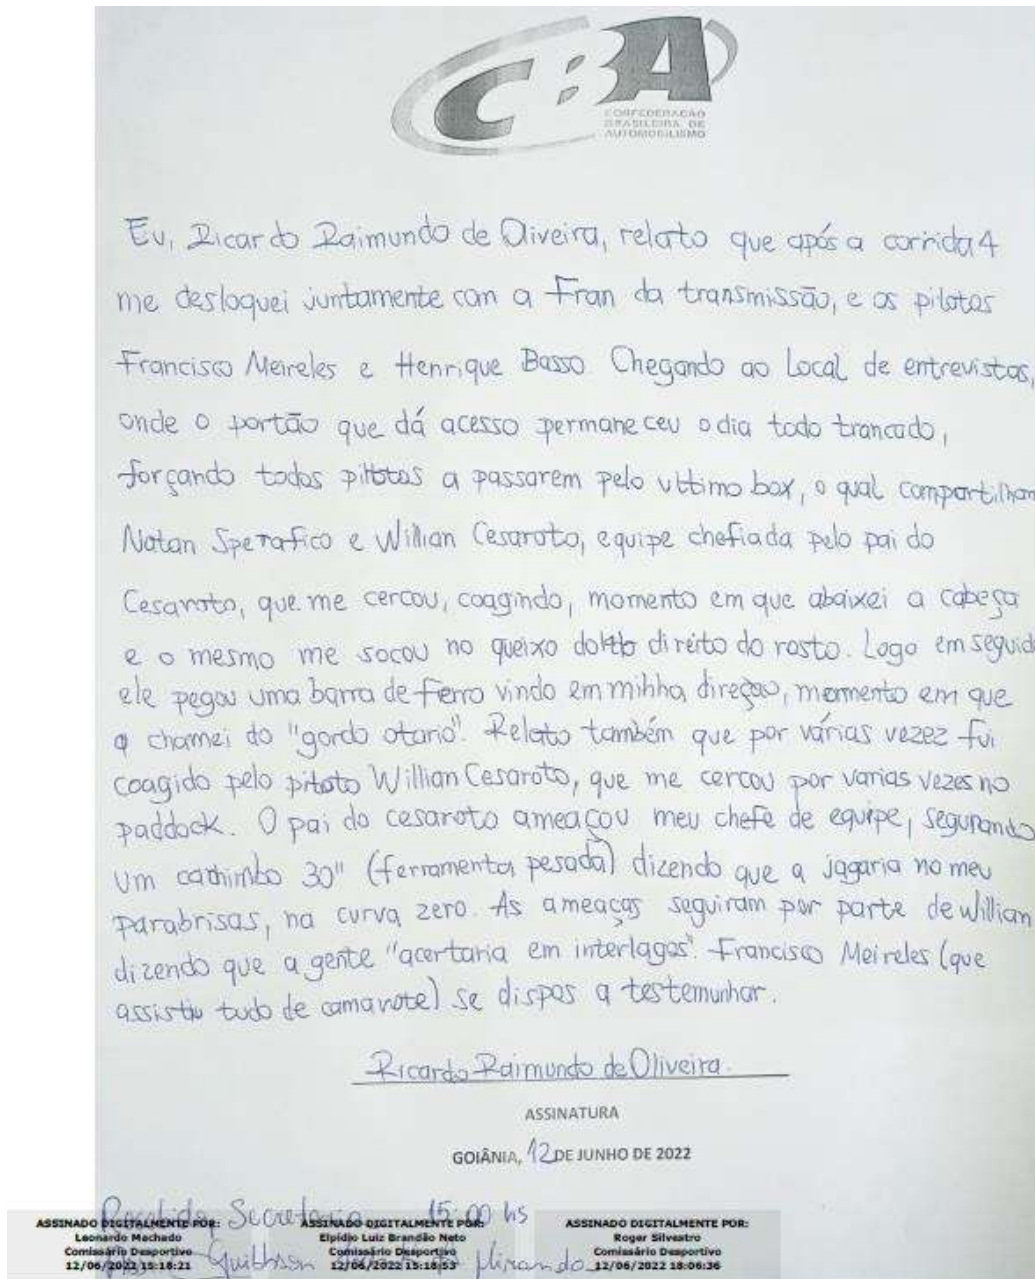 CBA
CONFEDERAÇÃO
BRASILEIRA DE
AUTOMOBILISMO
Eu, Ricardo Raimundo de Oliveira, relato que após a corrida 4
me desloquei juntamente com a Fran da transmissão, e os pilotos
Francisco Meireles e Henrique Basso. Chegando ao Local de entrevistas,
onde o portão que dá acesso permaneceu o dia todo trancado,
forçando todos pilotos a passarem pelo ultimo box, o qual compartilham
Natan Sperafico e Willian Cesaroto, equipe chefiada pelo pai do
Cesaroto, que me cercou, coagindo, momento em que abaixei a cabeça
e o mesmo me socou no queixo do lado direito do rosto. Logo em seguida
ele pegou uma barra de ferro vindo em minha direção, momento em que
o chamei do "gordo otario". Relato também que por várias vezez fui
coagido pelo piloto Willian Cesaroto, que me cercou por varias vezes no
paddock. O pai do cesaroto ameaçou meu chefe de equipe, segurando
um cachimbo 30" (ferramenta pesada) dizendo que a jogaria no meu
parabrisas, na curva zero. As ameaças seguiram por parte de Willian
dizendo que a gente "acertaria em interlagos". Francisco Meireles (que
assistiu tudo de camarote) se dispos a testemunhar.
Ricardo Raimundo de Oliveira.
ASSINATURA
GOIÂNIA, 12 DE JUNHO DE 2022
Recebido Secretaria 15:00 hs
ASSINADO DIGITALMENTE POR: ASSINADO DIGITALMENTE POR: ASSINADO DIGITALMENTE POR:
Leonardo Machado Elpidio Luiz Brandão Neto Roger Silvestro
Comissário Desportivo Comissário Desportivo Comissário Desportivo
12/06/2022 15:18:21 12/06/2022 15:18:53 12/06/2022 18:06:36
Miranda